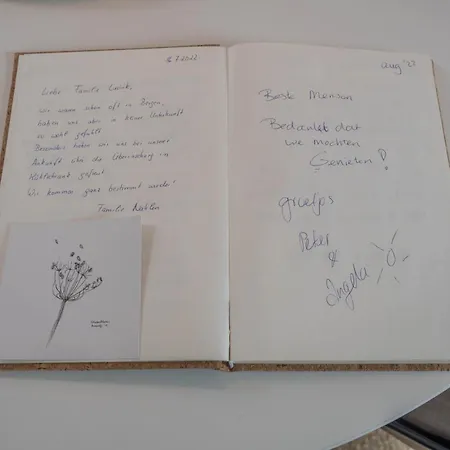 7.2022
Liebe Familie
wir waren schon oft in Bergen,
haben uns aber in keiner Unterkunft
so wohl gefühlt.
Besonders haben wir uns bei unserer
Ankunft über die Überraschung im
gefreut.
Wir kommen ganz bestimmt wieder!
Familie
aug '22
Beste Mensen
Bedankt dat
we mochten
Genieten!
groetjes
Peter
&
Ingela